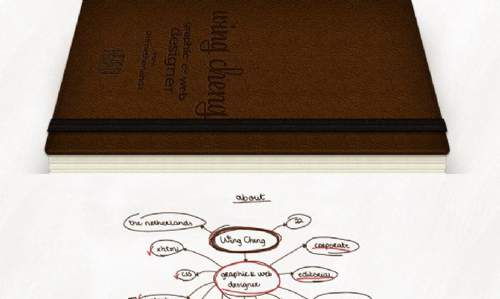 wing cheng
graphic & web
designer
from
the netherlands
about
the netherlands
22
Wing Cheng
xhtml
corporate
css
graphic & web
designer
editorial